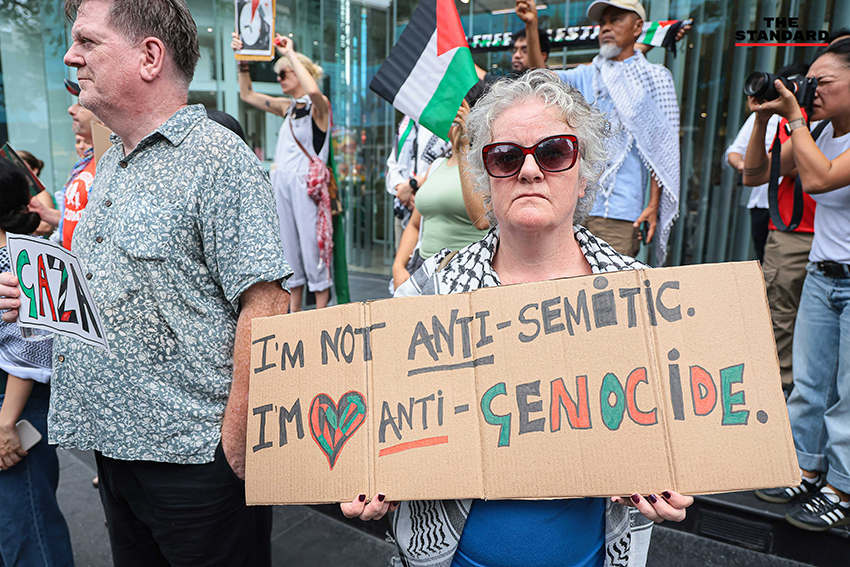 THE
STANDARD
GAZA
I'M NOT ANTI-SEMITIC.
I'M ANTI-GENOCIDE.